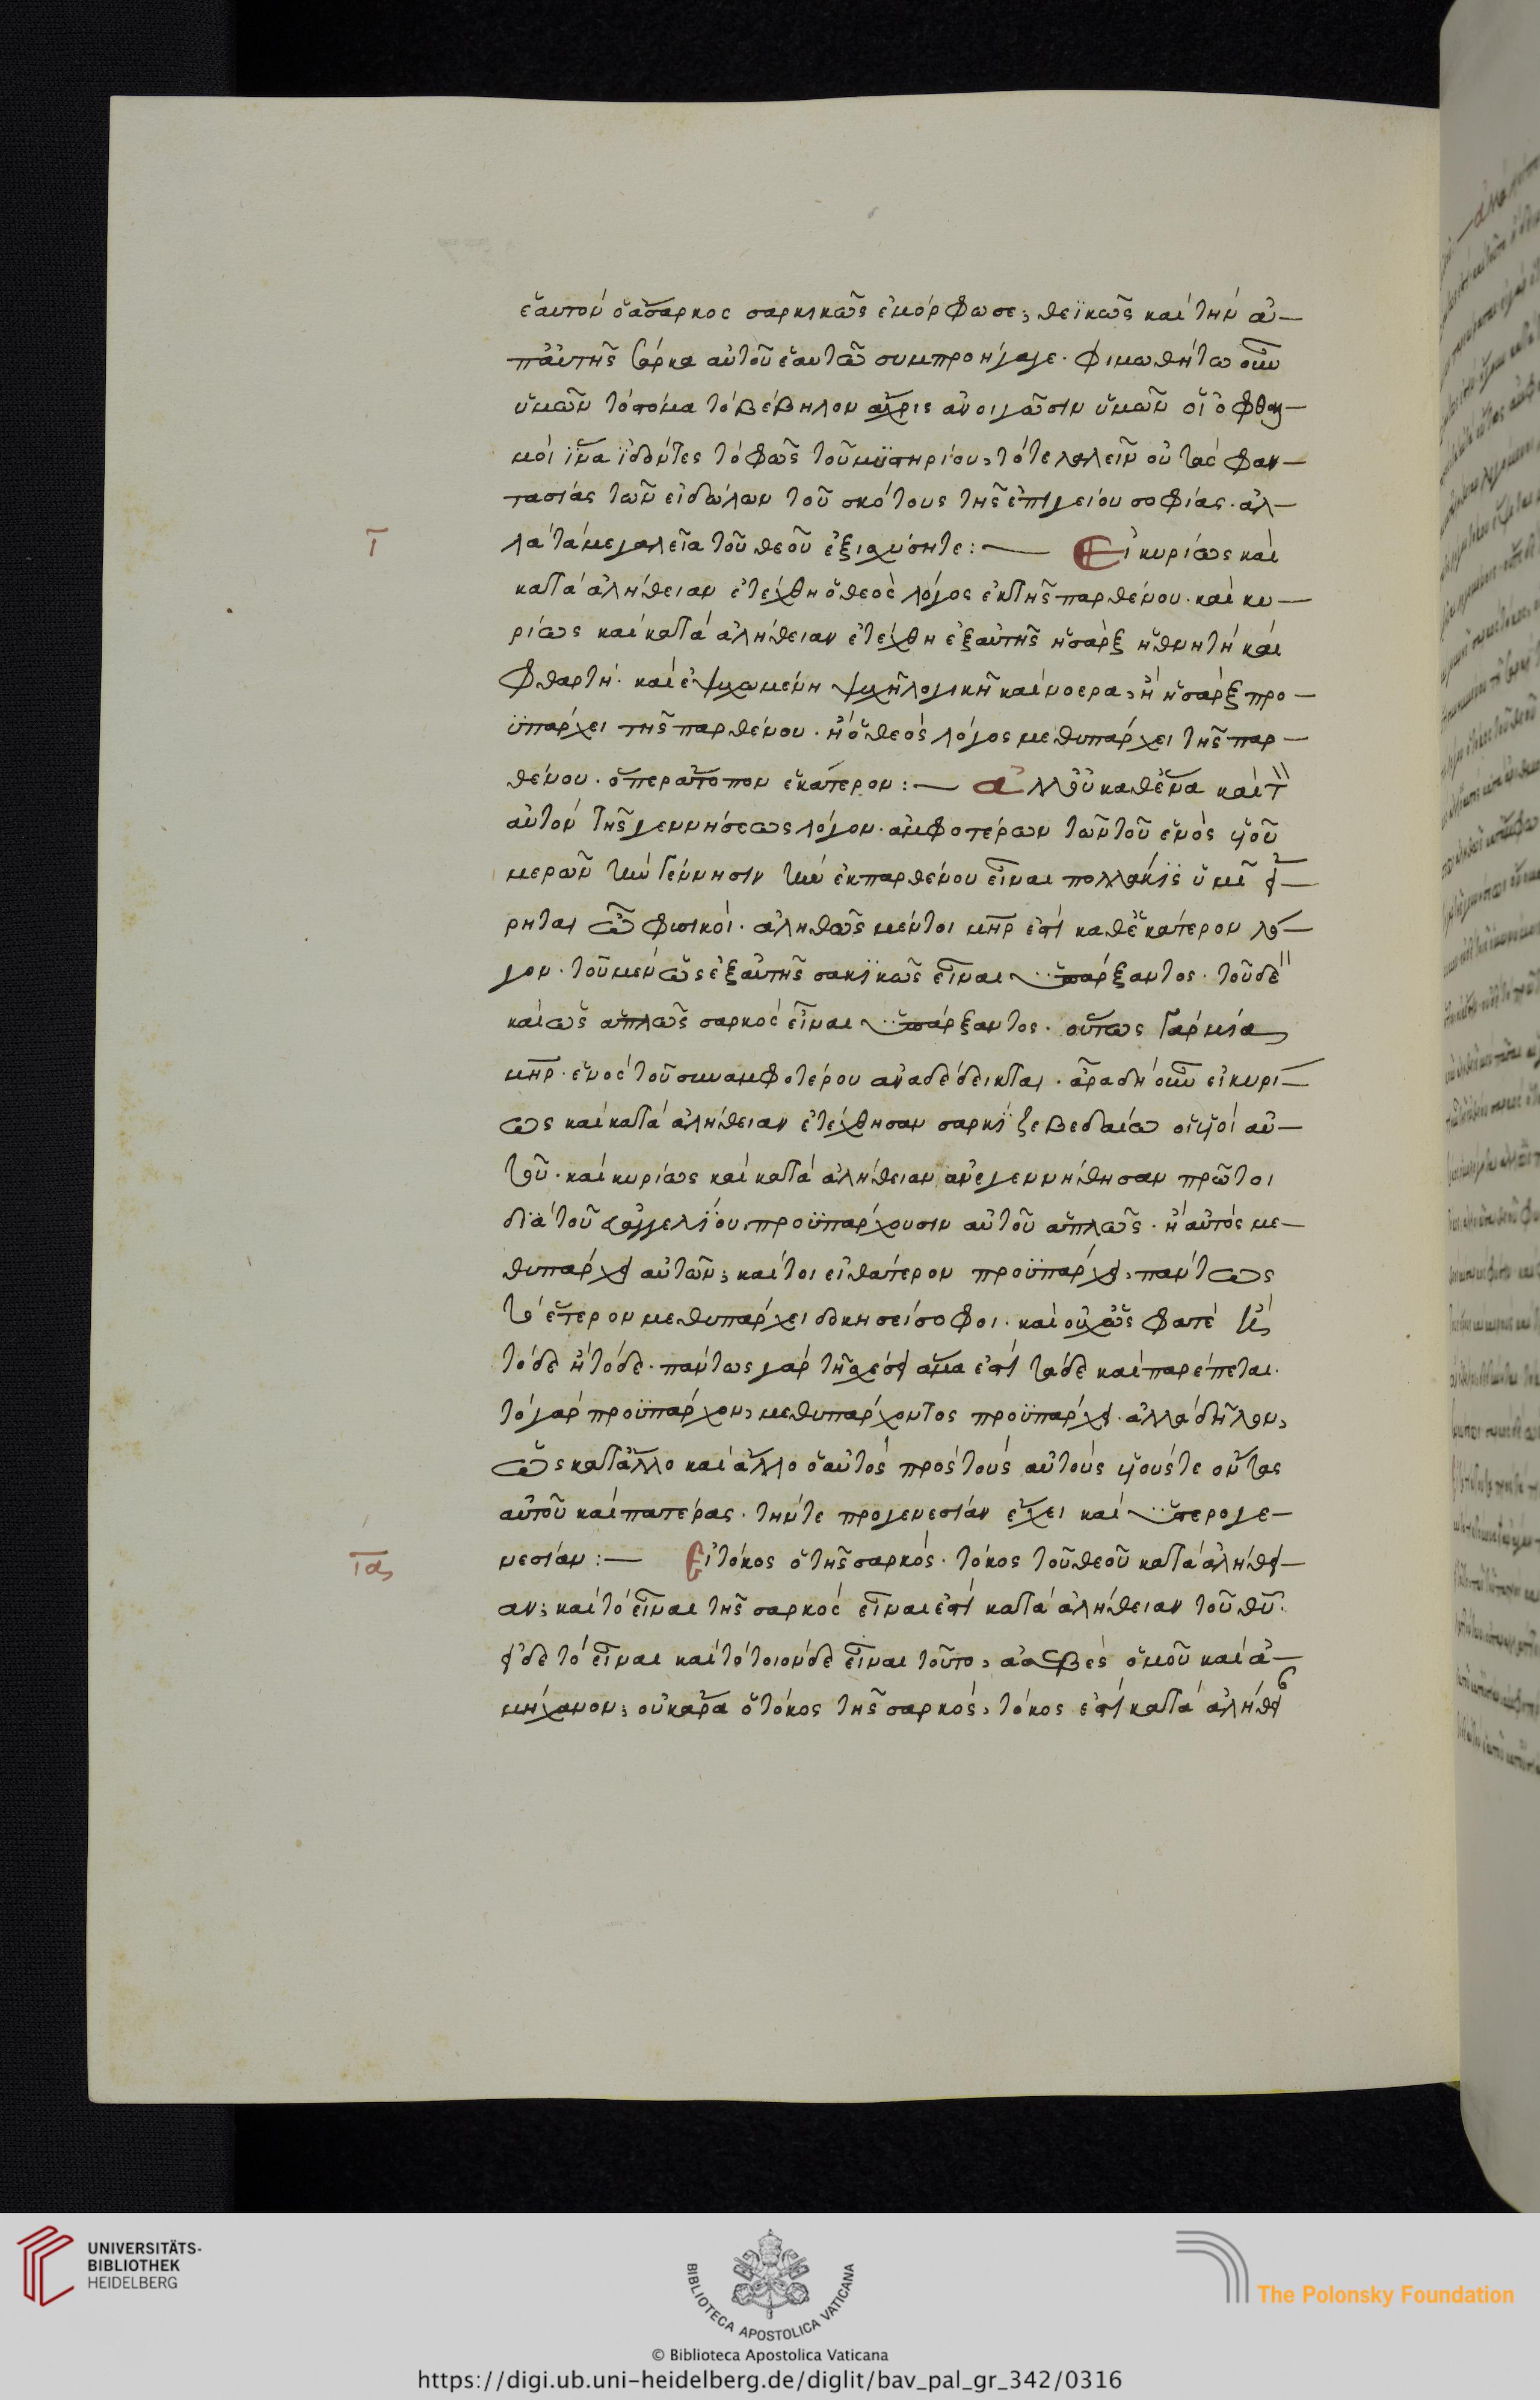 ἑαυτὸν ὁ ἄσαρκος σαρκικῶς ἐμόρφωσε, θεϊκῶς καὶ τὴν ἀ-
π' αὐτῆς σάρκα αὐτοῦ ἑαυτῶ συμπροήγαγε. φιμωθήτω οὖν
ὑμῶν τὸ στόμα τὸ βέβηλον ἄχρις ἀνοιγῶσιν ὑμῶν οἱ ὀφθαλ-
μοὶ ἵνα ἰδόντες τὸ φῶς τοῦ μυστηρίου, τότε λαλεῖν οὐ τὰς φαν-
τασίας τῶν εἰδώλων τοῦ σκότους τῆς ἐπιγείου σοφίας. ἀλ-
ι λὰ τὰ μεγαλεῖα τοῦ θεοῦ ἐξισχύσητε: Εἰ κυρίως καὶ
κατὰ ἀλήθειαν ἐτέχθη ὁ θεὸς λόγος ἐκ τῆς παρθένου. καὶ κυ-
ρίως καὶ κατὰ ἀλήθειαν ἐτέχθη ἐξ αὐτῆς ἡ σὰρξ ἡ θνητὴ καὶ
φθαρτὴ. καὶ ἐψυχωμένη ψυχῆ λογικῆ καὶ νοερα, ἢ ἡ σὰρξ προ-
ϋπάρχει τῆς παρθένου. ἢ ὁ θεὸς λόγος μεθυπάρχει τῆς παρ-
θένου. ὅπερ ἄτοπον ἑκάτερον: ἀλλ' οὐ καθ' ἕνα καὶ τ
αὐτὸν τῆς γεννήσεως λόγον. ἀμφοτέρων τῶν τοῦ ἑνὸς υἱοῦ
μερῶν τὴν γέννησιν τὴν ἐκ παρθένου εἶναι πολλακϊς ὑμῖ εἴ-
ρηται ὦ φυσικοί. ἀληθῶς μέντοι μηρ ἐστὶ καθ' ἑκάτερον λό-
γον. τοῦ μὲν ὡς ἐξ αὐτῆς σακϊκῶς εἶναι ὑπάρξαντος. τοῦ δὲ
καὶ ὡς ἁπλῶς σαρκὸς εἶναι ὑπάρξαντος. οὕτως γὰρ μία
μηρ. ἑνὸς τοῦ συναμφοτέρου ἀναδέδεικται. ἆρα δὴ οὖν εἰ κυρί-
ως καὶ κατὰ ἀλήθειαν ἐτέχθησαν σαρκὶ ζεβεδαίω οἱ υἱοὶ αὐ-
τοῦ. καὶ κυρίως καὶ κατὰ ἀλήθειαν ἀνεγεννήθησαν πρῶτοι
διὰ τοῦ εὐαγγελίου, προϋπάρχουσιν αὐτοῦ ἁπλῶς. ἢ αὐτὸς με-
θυπάρχει αὐτῶν, καίτοι εἰ θάτερον προϋπάρχει, πάντως
τὸ ἕτερον μεθυπάρχει δοκησείσοφοι. καὶ οὐχ ὥς φατὲ
τόδε ἢ τόδε. πάντως γὰρ τῆ σχέσει ἅμα ἐστὶ τάδε καὶ παρέπεται.
τὸ γὰρ προϋπάρχον, μεθυπάρχοντος προϋπάρχει. ἀλλὰ δῆλον,
ὡς κατ' ἄλλο καὶ ἄλλο ὁ αὐτὸς πρὸς τοὺς αὐτοὺς υἱούς τε ὄντας
αὐτοῦ καὶ πατέρας. τήν τε προγενεσίαν ἔχει καὶ ὑστερογε-
ια νεσίαν: Εἰ τόκος ὁ τῆς σαρκός. τόκος τοῦ θεοῦ κατὰ ἀλήθει-
αν, καὶ τὸ εἶναι τῆς σαρκὸς εἶναι ἐστὶ κατὰ ἀλήθειαν τοῦ θυ.
εἰ δὲ τὸ εἶναι καὶ τὸ τοιόνδε εἶναι τοῦτο, ἀσεβὲς ὁμοῦ καὶ ἀ-
μήχανον, οὐκ ἄρα ὁ τόκος τῆς σαρκός, τόκος ἐστὶ κατὰ ἀλήθει
UNIVERSITÄTS-
BIBLIOTHEK
HEIDELBERG
BIBLIOTECA APOSTOLICA VATICANA
The Polonsky Foundation
© Biblioteca Apostolica Vaticana
https://digi.ub.uni-heidelberg.de/diglit/bav_pal_gr_342/0316